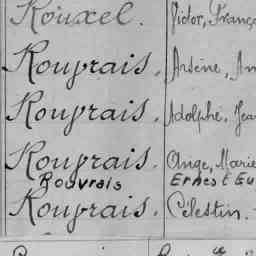 Rouxel. Victor, Franç
Rouvrais. Arsène, An
Rouvrais. Adolphe, Jea
Rouvrais. Ange, Marie
Rouvrais Ernest Eu
Rouvrais. Célestin.